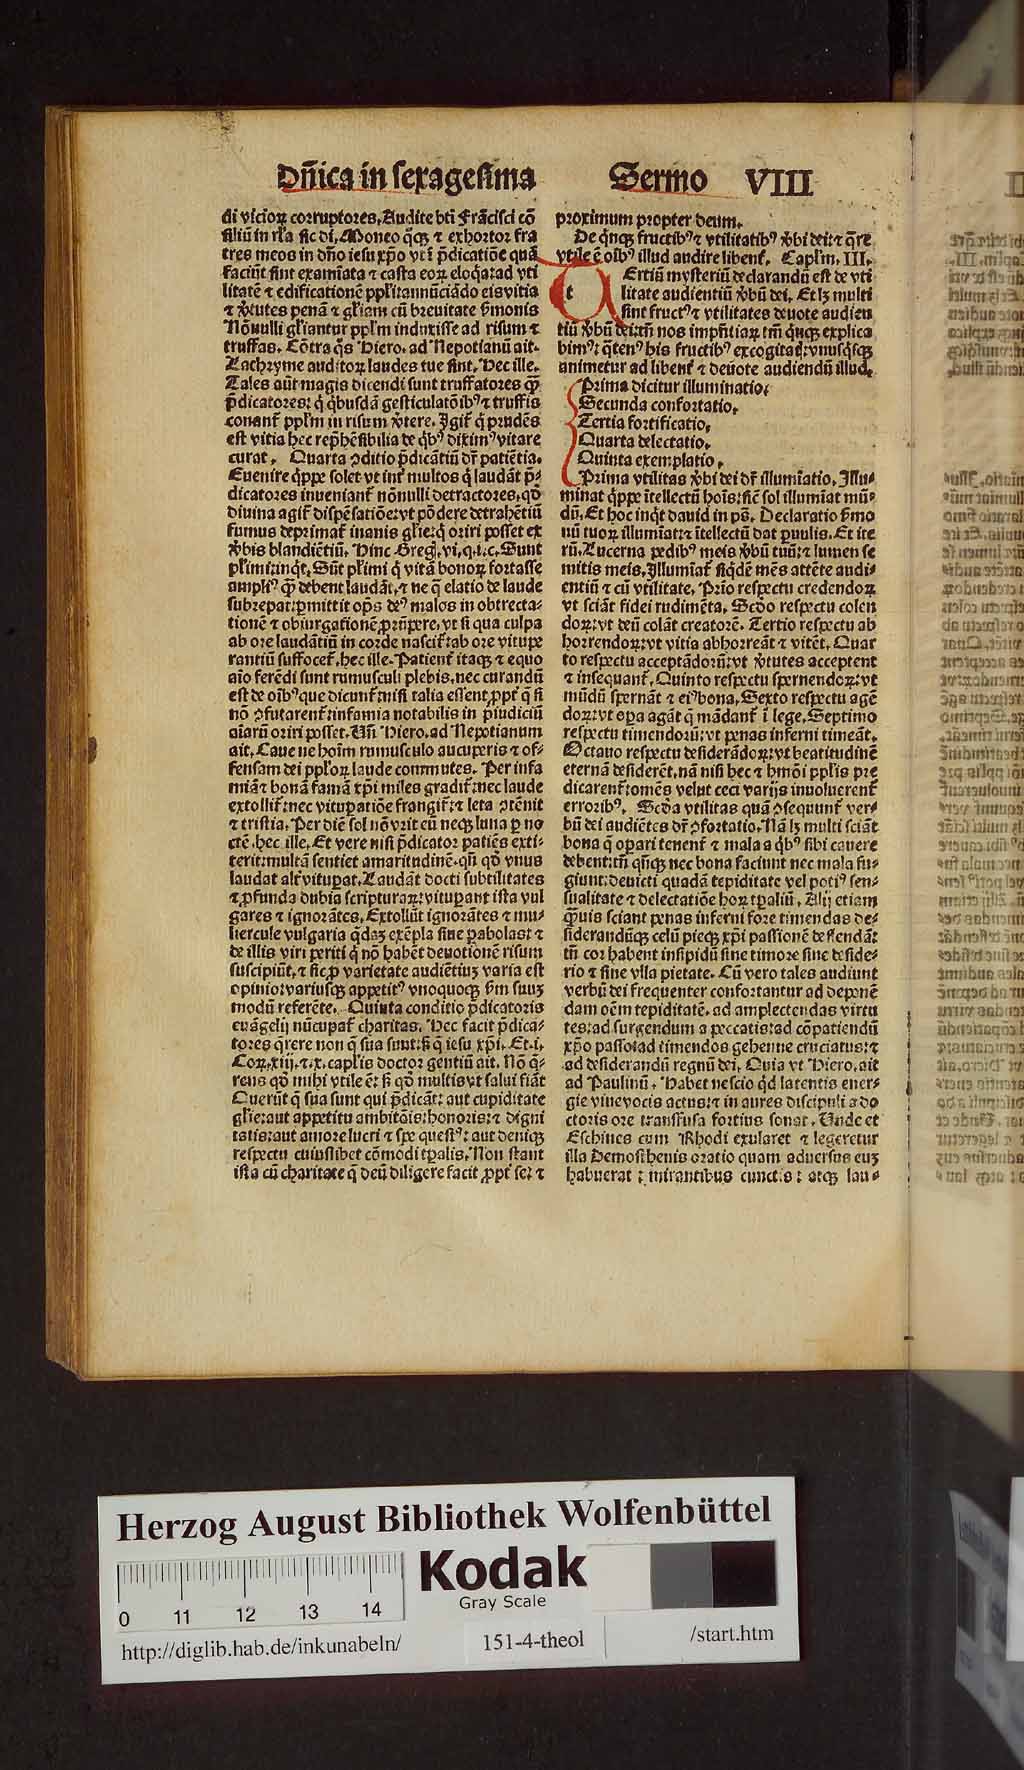 Dn̄ica in sexagesima Sermo VIII
di vicioꝝ corruptores. Audite bti Frācisci cō
siliū in rl'a sic di. Moneo q̄cꝫ ⁊ exhortor fra
tres meos in dn̄o iesu xp̄o vt i p̄dicatiōe quā
faciūt sint examīata ⁊ casta eoꝝ eloq̄a: ad vti
litatē ⁊ edificationē ppl'i: annūciādo eis vitia
⁊ v̾tutes penā ⁊ gl'iam cū breuitate s̾monis
Nōnulli gl'iantur ppl'm induxisse ad risum ⁊
truffas. Cōtra q̄s Hiero. ad Nepotianū ait.
Lachryme auditoꝝ laudes tue sint. Hec ille.
Tales aūt magis dicendi sunt truffatores q̄ꝫ
p̄dicatores: q̇ q̇busdā gesticulatōibꝰ ⁊ truffis
conant̾ ppl'm in risum v̾tere. Igit̾ q̇ prudēs
est vitia hec rep̄hēsibilia de q̇bꝰ diximꝰ vitare
curat. Quarta ꝯditio p̄dicātiū dr̄ patiētia.
Euenire q̇ppe solet vt int̾ multos q̇ laudāt p̄-
dicatores inueniant̾ nōnulli detractores, qd̄
diuina agit̾ dispēsatiōe: vt pōdere detrahētiū
fumus deprimat̾ inanis gl'ie: q̇ oriri posset ex
v̾bis blandiētiū. Hinc Greg. vi. q. i. c. Sunt
pl'imi: inq̇t. Sūt pl'imi q̇ vitā bonoꝝ fortasse
ampliꝰ q̄ꝫ debent laudāt, ⁊ ne q̄ elatio de laude
subrepat: ꝑmittit op̄s deꝰ malos in obtrecta-
tionē ⁊ obiurgationē ꝓrūpere, vt si qua culpa
ab ore laudātiū in corde nascit̾: ab ore vitupe
rantiū suffocet̾, hec ille. Patient̾ itaqꝫ ⁊ equo
aīo ferēdi sunt rumusculi plebis, nec curandū
est de oībꝰ que dicunt̾: nisi talia essent ꝓpt̾ q̄ si
nō ꝯfutarent̾: infamia notabilis in p̄iudiciū
aīarū oriri posset. Vn̄ Hiero. ad Nepotianum
ait. Caue ne hoīm rumusculo aucuperis ⁊ of-
fensam dei ppl'oꝝ laude commutes. Per infa
miā ⁊ bonā famā xp̄i miles gradit̾: nec laude
extollit̾: nec vituꝑatiōe frangit̾: ⁊ leta ꝯtēnit
⁊ tristia. Per diē sol nō vrit eū neqꝫ luna ꝑ no
ctē. hec ille. Et vere nisi p̄dicator patiēs exti-
terit: multā sentiet amaritudinē. qn̄ qd̄ vnus
laudat alt̾ vituꝑat. Laudāt docti subtilitates
⁊ ꝓfunda dubia scripturaꝝ: vituꝑant ista vul
gares ⁊ ignorātes. Extollūt ignorātes ⁊ mu-
liercule vulgaria q̇daꝫ exēpla siue ꝑabolas: ⁊
de illis viri periti q̇ nō habēt deuotionē risum
suscipiūt. ⁊ sic ꝓ varietate audiētiuꝫ varia est
opinio: variusqꝫ appetitꝰ vnoquoqꝫ s̄m suuꝫ
modū referēte. Quinta conditio p̄dicatoris
euāgelij nūcupat̾ charitas. Hec facit p̄dica-
tores q̄rere non q̄ sua sunt: sꝫ q̄ iesu xp̄i. Et. i.
Coꝝ. xiij. ⁊. x. capl'is doctor gentiū ait. Nō q̄-
rens qd̄ mihi vtile ē: sꝫ qd̄ multis vt salui fiāt
Querūt q̄ sua sunt qui p̄dicāt: aut cupiditate
gl'ie: aut appetitu ambitōis: honoris: ⁊ digni
tatis: aut amore lucri ⁊ spe questꝰ: aut deniqꝫ
respectu cuiuslibet cōmodi tꝑalis. Non stant
ista cū charitate q̄ deū diligere facit ꝓpt̾ se: ⁊
proximum propter deum.
De q̇nqꝫ fructibꝰ ⁊ vtilitatibꝰ v̾bi dei: ⁊ q̄re
vtile ē oībꝰ illud audire libent̾. Capl'm. III.
t Ertiū mysteriū declarandū est de vti
litate audientiū v̾bū dei. Et lꝫ multi
sint fructꝰ ⁊ vtilitates deuote audien
tiū v̾bū dei: tn̄ nos imp̄ntiaꝝ tm̄ q̇nqꝫ explica
bimꝰ: q̇tenꝰ his fructibꝰ excogitatꝭ: vnusq̇sqꝫ
animetur ad libent̾ ⁊ deuote audiendū illud.
Prima dicitur illuminatio.
Secunda confortatio.
Tertia fortificatio.
Quarta delectatio.
Quinta exemplatio.
Prima vtilitas v̾bi dei dr̄ illumīatio. Illu-
minat q̇ppe ītellectū hoīs: sic̄ sol illumīat mū-
dū. Et hoc inq̇t dauid in ps̄. Declaratio s̾mo
nū tuoꝝ illumīat: ⁊ ītellectū dat ꝑuulis. Et ite
rū. Lucerna pedibꝰ meis v̾bū tuū: ⁊ lumen se
mitis meis. Illumīat̾ siq̇dē mēs attēte audi-
entiū ⁊ cū vtilitate. Prīo respectu credendoꝝ
vt sciāt fidei rudimēta. Scd̄o respectu colen
doꝝ: vt deū colāt creatorē. Tertio respectu ab
horrendoꝝ: vt vitia abhorreāt ⁊ vitēt. Quar
to respectu acceptādoꝝ: vt v̾tutes acceptent
⁊ insequant̾. Quinto respectu spernendoꝝ: vt
mūdū spernāt ⁊ eiꝰ bona. Sexto respectu agē
doꝝ: vt oꝑa agāt q̄ mādant̾ ī lege. Septimo
respectu timendorū: vt penas inferni timeāt.
Octauo respectu desiderādoꝝ: vt beatitudinē
eternā desiderēt. nā nisi hec ⁊ hmōi ppl'is pre
dicarent̾: omēs velut ceci varijs inuoluerent̾
erroribꝰ. Scd̄a vtilitas quā ꝯsequunt̾ ver-
bū dei audiētes dr̄ ꝯfortatio. Nā lꝫ multi sciāt
bona q̄ oꝑari tenent̾ ⁊ mala a q̇bꝰ sibi cauere
debent: tn̄ qn̄qꝫ nec bona faciunt nec mala fu-
giunt: deuicti quadā tepiditate vel potiꝰ sen-
sualitate ⁊ delectatiōe hoꝝ tꝑaliū. Alij etiam
q̄ꝫuis sciant penas inferni fore timendas de-
siderandūqꝫ celū pieqꝫ xp̄i passionē deflendā:
tn̄ cor habent insipidū sine timore sine deside-
rio ⁊ sine vlla pietate. Cū vero tales audiunt
verbū dei frequenter confortantur ad deponē
dam oēm tepiditatē. ad amplectendas virtu
tes: ad surgendum a peccatis: ad cōpatiendū
xp̄o passo: ad timendos gehenne cruciatus: ⁊
ad desiderandū regnū dei. Quia vt Hiero. ait
ad Paulinū. Habet nescio q̇d latentis ener-
gie viue vocis actus: ⁊ in aures discipuli a do
ctoris ore transfusa fortius sonat. Unde et
Eschines cum Rhodi exularet ⁊ legeretur
illa Demosthenis oratio quam aduersus euꝫ
habuerat: mirantibus cunctis: atqꝫ lau-
Herzog August Bibliothek Wolfenbüttel
Kodak
Gray Scale
0 11 12 13 14
http://diglib.hab.de/inkunabeln/ 151-4-theol /start.htm